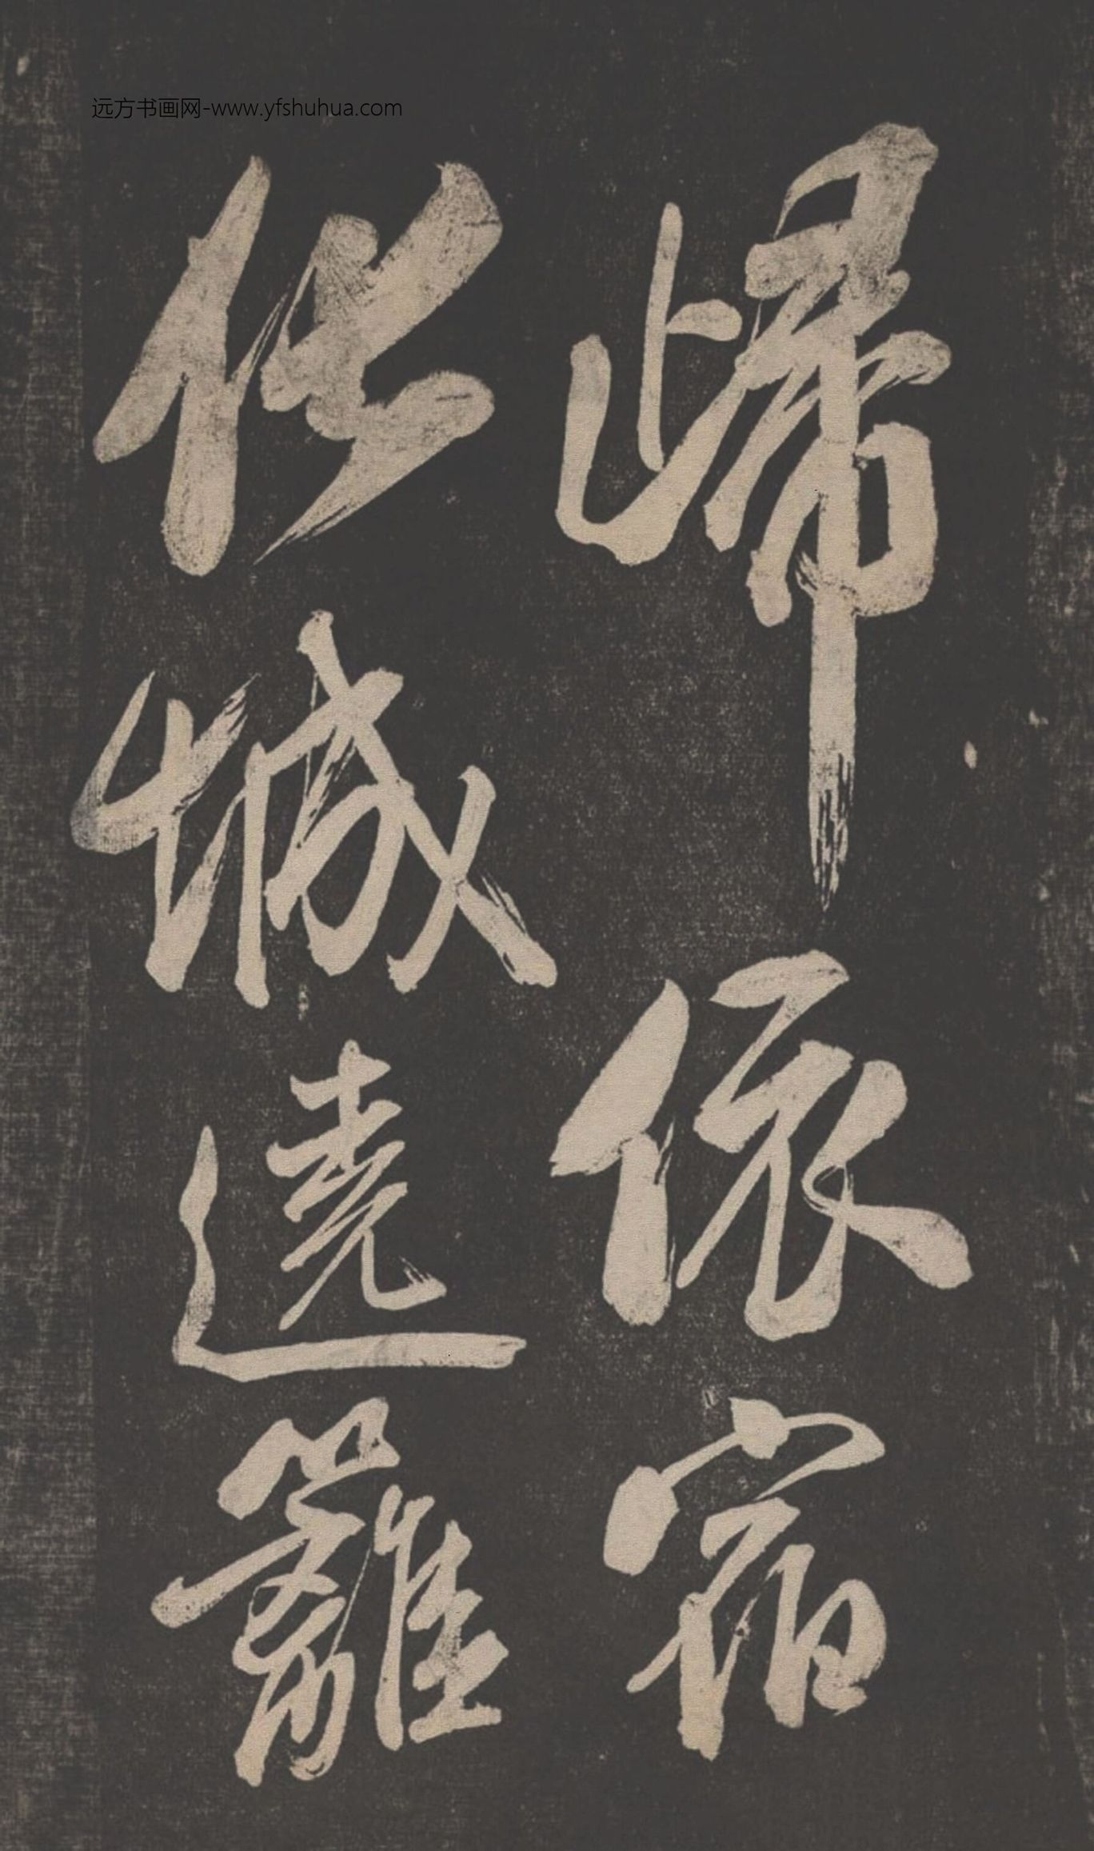 远方书画网-www.yfshuhua.com
歸依宿
化城遶籬